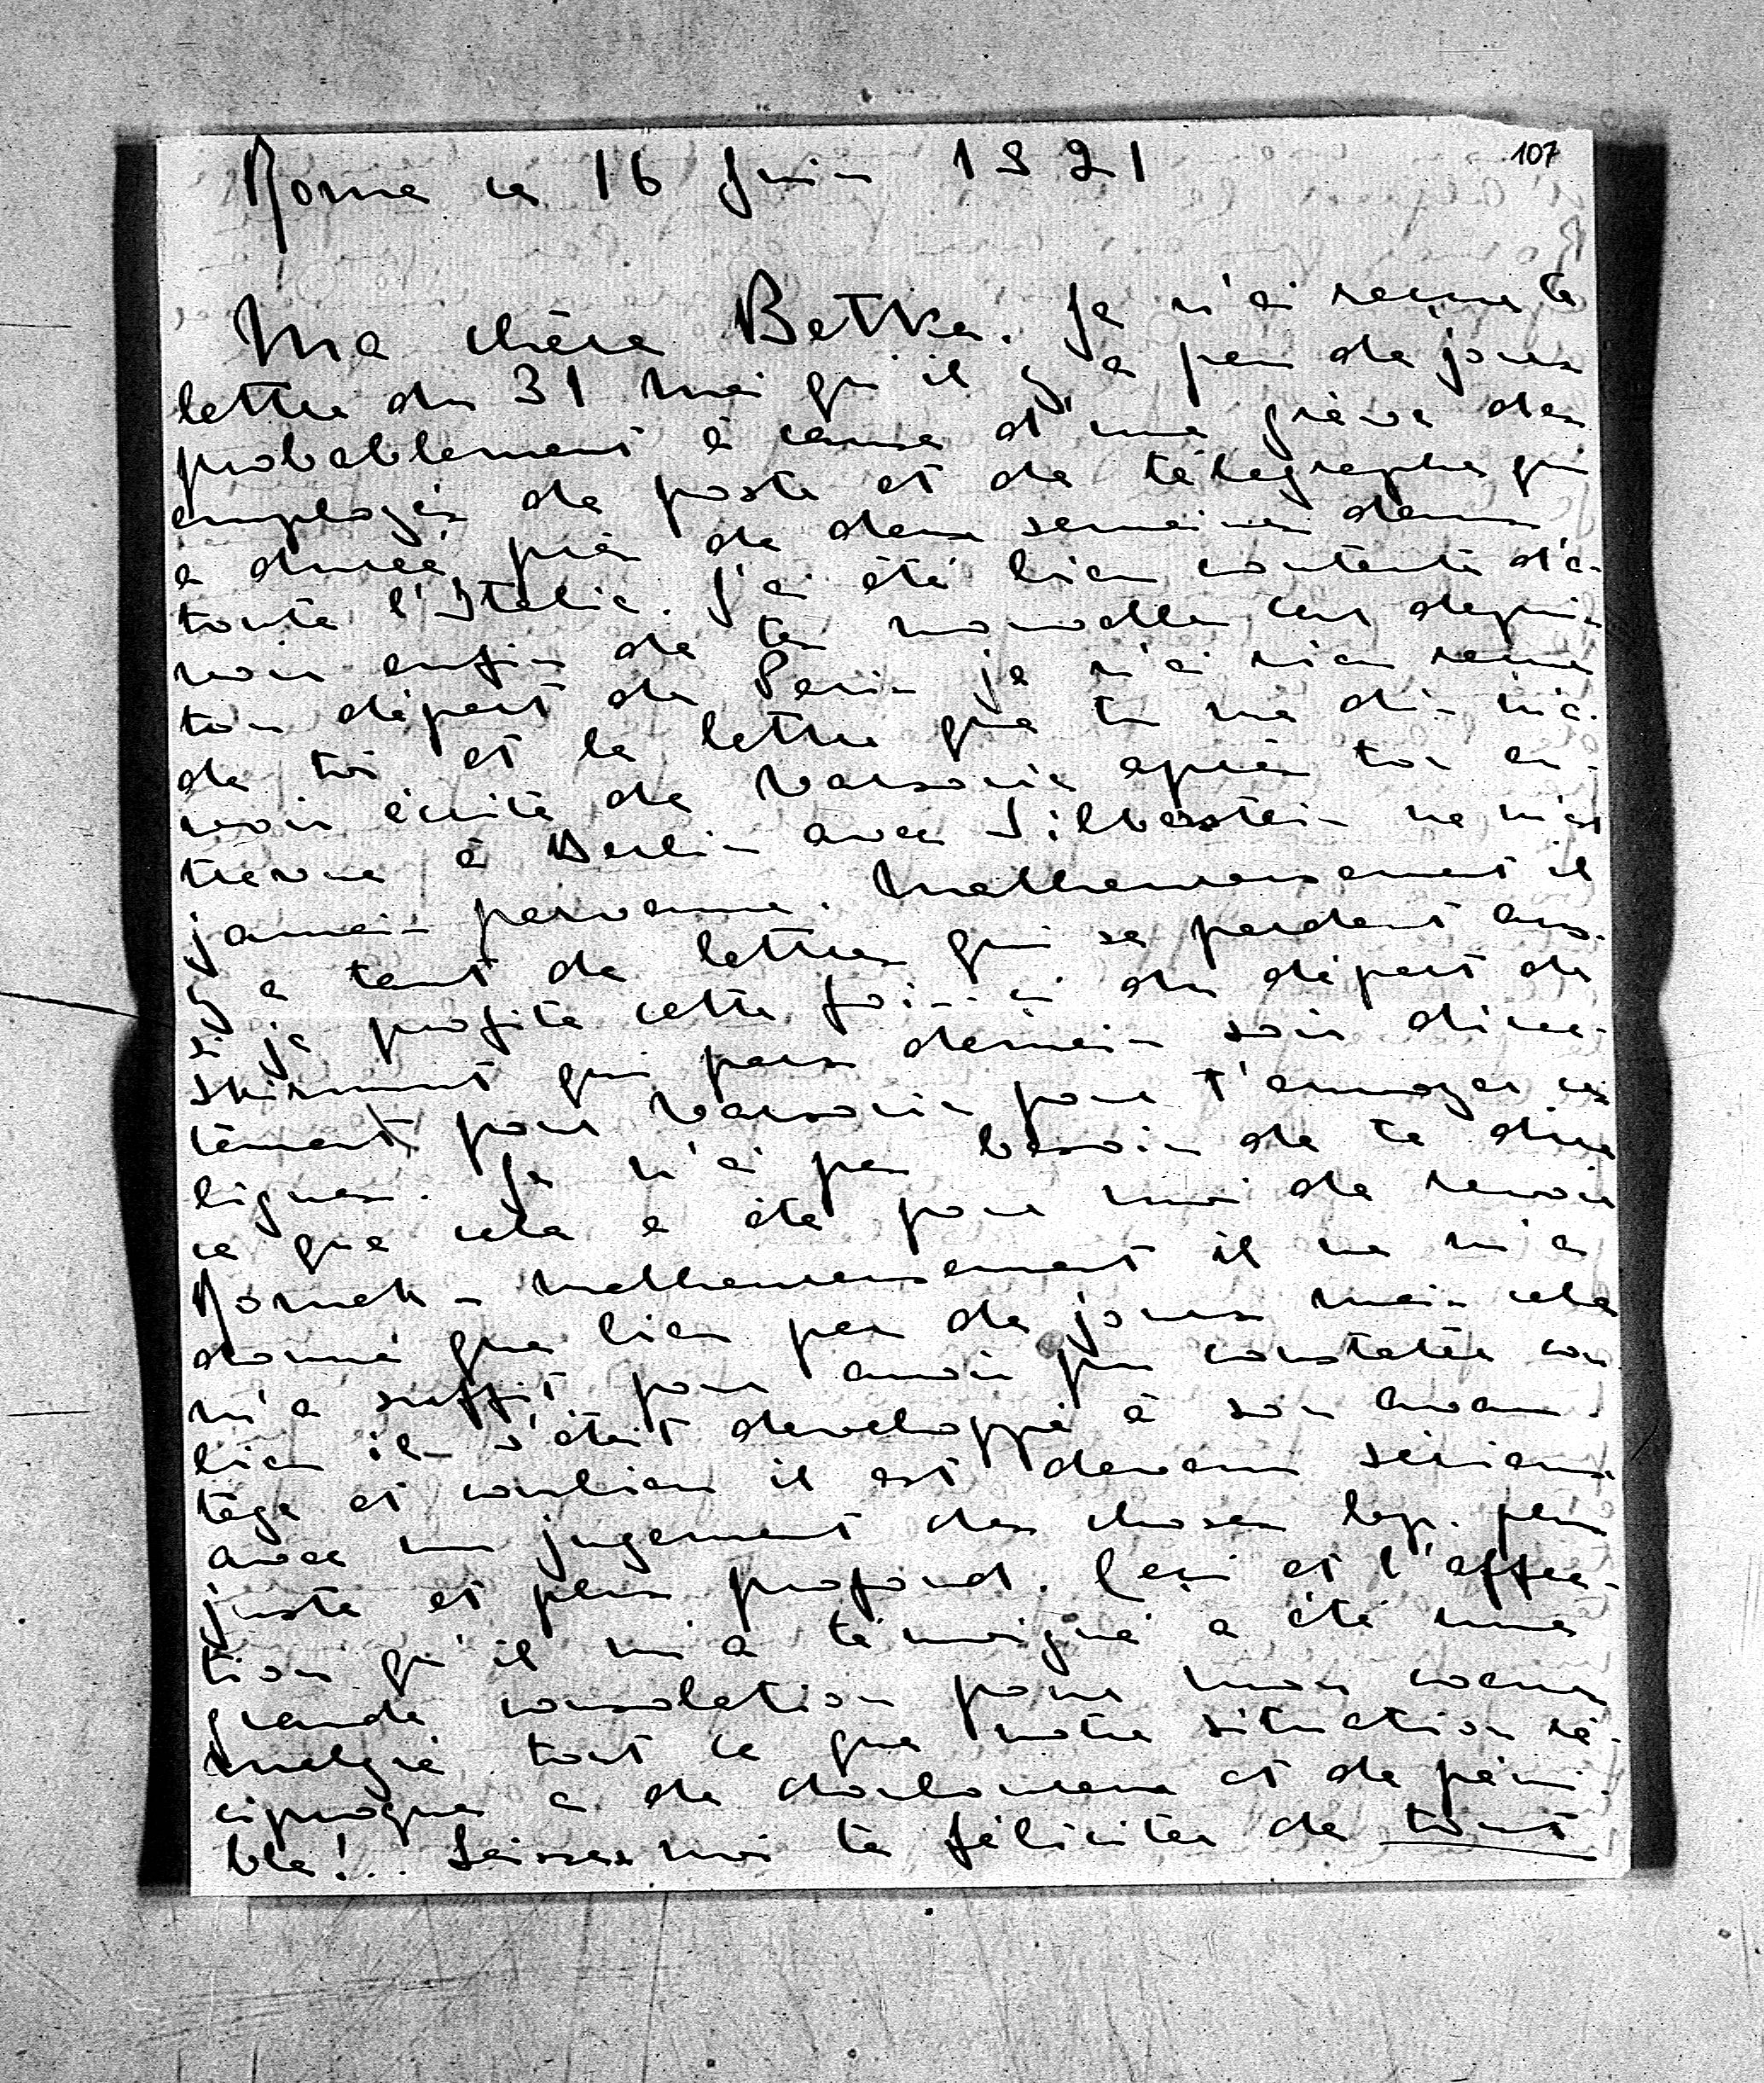 107
Rome ce 16 Juin 1921
Ma chère Betka. Je n'ai reçue ta
lettre du 31 Mai qu'il y a peu de jours
probablement à cause d'une grève des
employés de poste et de télégraphe qui
a durée près de deux semaines dans
toute l'Italie. J'ai été bien contente d'a-
voir enfin de tes nouvelles car depuis
ton départ de Paris je n'ai rien reçue
de toi et la lettre que tu me dis m'a-
voir écrite de Varsovie après ton en-
trevue à Berlin avec Silberstein ne m'est
jamais parvenue. Malheureusement il
y a tant de lettres qui se perdent aus-
si je profite cette fois-ci du départ de
qui part demain soir direc-
tement pour Varsovie pour t'envoyer ces
lignes. Je n'ai pas besoin de te dire
ce que cela a été pour moi de revoir
Romek - malheureusement il ne m'a
donné que bien peu de jours mais cela
m'a suffit pour avoir pu constater com
bien il s'était developpé à son avan-
tage et combien il est devenu sérieux
avec un jugement des choses bcp. plus
juste et plus profond. Ceci et l'affec-
tion qu'il m'a témoigné a été une
grande consolation pour mon coeur
malgré tout ce que notre situation ré-
ciproque a de douloureux et de péni-
ble!.. Laisses moi te féliciter de tout